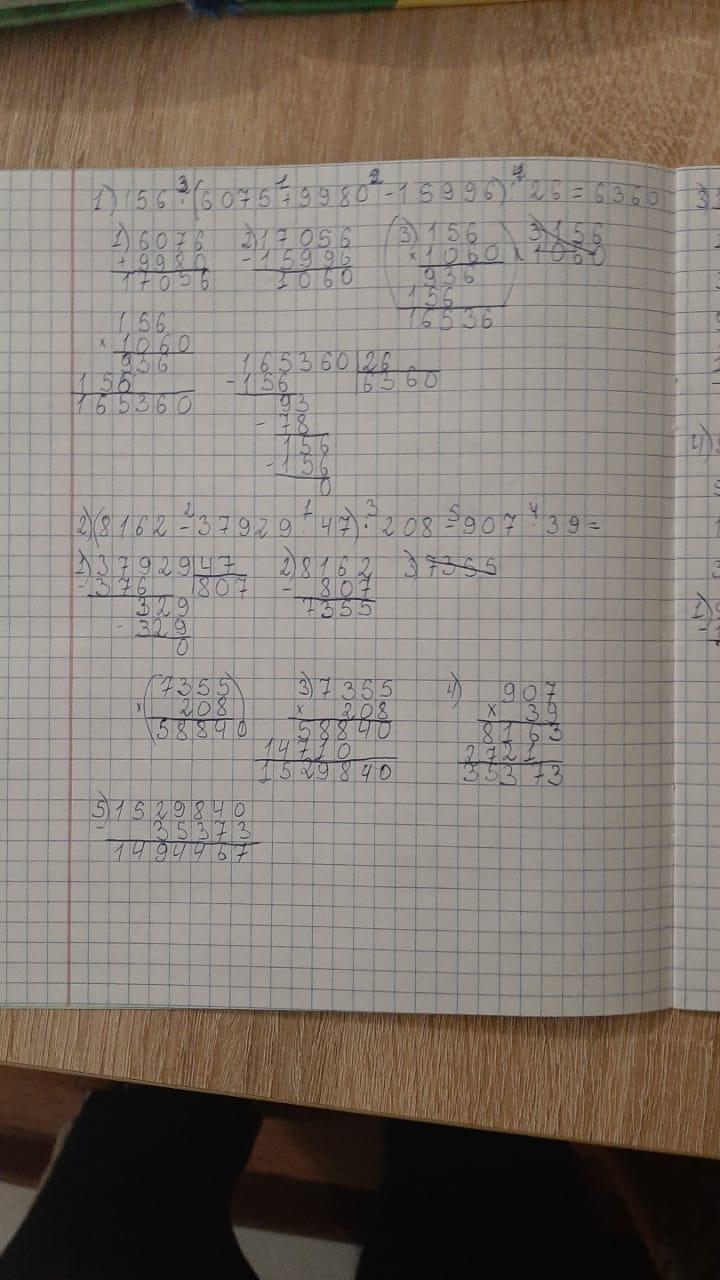 1) 156 · (6075 + 9980 - 15996) : 26 = 6360
3 1 2 4
1) 6076 + 9980 = 17056
2) 17056 - 15996 = 1060
(3) 156 × 1060
936
156
16536)
3) 156 × 1060
156
× 1060
936
156
165360
165360 | 26
- 156 | 6360
93
- 78
156
- 156
0
2) (8162 - 37929 : 47) · 208 - 907 · 39 =
2 1 3 5 4
1) 37929 | 47
- 376 | 807
329
- 329
0
2) 8162
- 807
7355
3) 7355
(7355
× 208)
58840
3) 7355
× 208
58840
14710
1529840
4) 907
× 39
8163
2721
35373
5) 1529840
- 35373
1494467
4)
1)